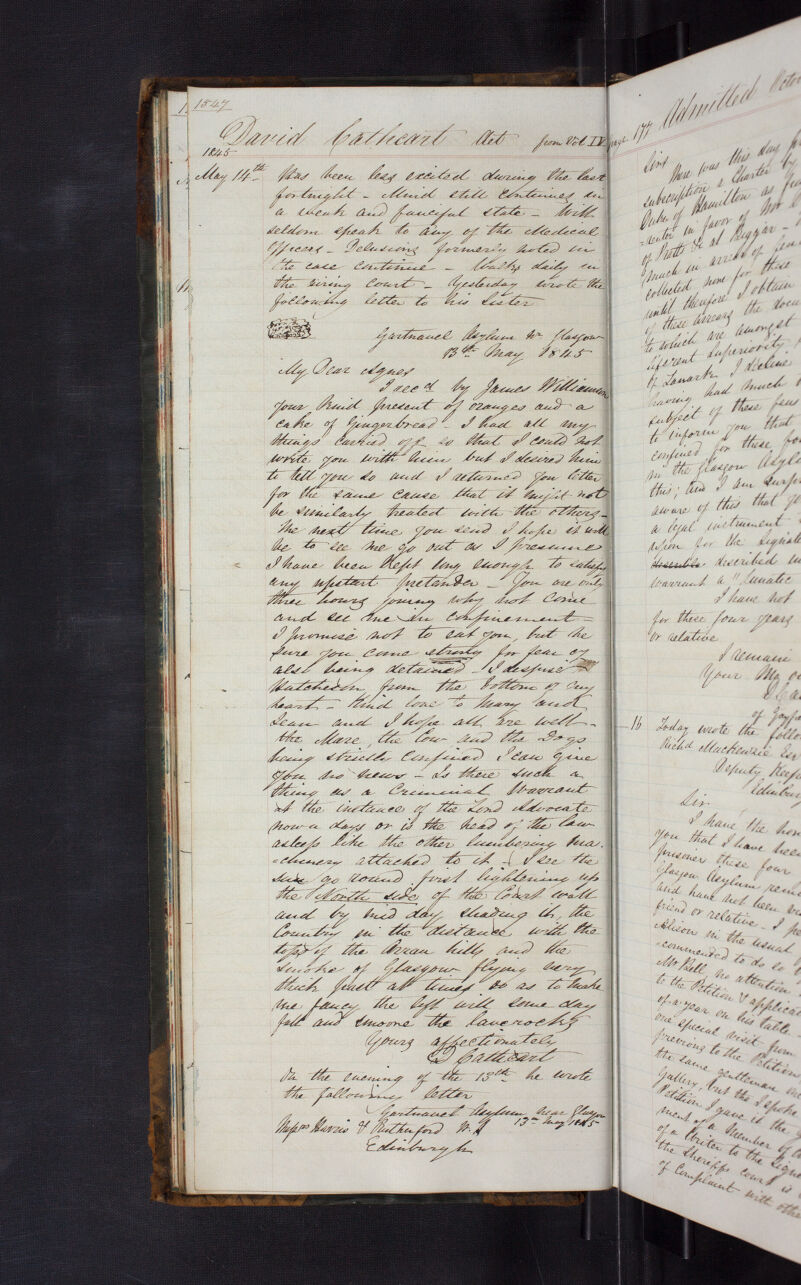 1547
David Cathcart Aet from Vol IV
1845
May 14th Has been less excited during the last
fortnight - Mind still continues in
a weak and fanciful state - Will
seldom speak to any of the Medical
Officers - Delusions formerly noted in
the case continue - Walks daily in
the airing court - Yesterday wrote the
following letter to his Sister
Gartnavel Asylum Nr Glasgow
13th May 1845
My Dear Agnes
I recd by James Williamson
your kind present of oranges and a
cake of Gingerbread - I had all my
things carried off so that I could not
write you with him but I desired him
to tell you so and I returned you letter
for the same cause that it might not
be similarly treated with the others -
The next time you send I hope it will
be to see me go out as I presume
I have been kept long enough to satisfy
any upstart pretender - You are only
three hours journey why not come
and see me in confinement -
I promise not to eat you, but be
sure you come strong for fear of
also being detained - I despise
Hutcheson from the bottom of my
heart - Kind love to Mary and
Jean and I hope all are well -
the Mare, the Cow and the Dogs
being strictly confined I can give
you no news - is there such a
thing as a Criminal Warrant
at the instance of the Lord Advocate
now a days or is the head of the law
asleep like the other lumbering ma-
=chinery attached to it - I see the
sun go round first lightening up
the North side of the Court wall
and by mid day shading it, the
Country in the distance with the
tops of the Arran hills and the
smoke of Glasgow flying very
thick past at times so as to make
me fancy the lift will some day
fall and smoore the lavrocks
Yours affectionately
D Cathcart
On the evening of the 13th he wrote
the following letter
Gartnavel Asylum near Glasgow
13th May 1845
Messrs Harris & Rutherford W.S
Edinburgh
page 177 Admitted Octo
Sirs
There was this day
subscription a Charter by
Duke of Hamilton as
in favor of Mr
of Biggar -
much in arrear of feu
collected none for three
until therefore I obtain
of these arrears the
to which are amongst
different Superiority
of Lanark I decline
having had much
subject of these feus
to inform you that
confined for these fo
in the Glasgow Asyl
this; and I am surp
aware of this that
a legal instrument
upon for the signat
described in
warrant a "lunatic
I have not
for these four years
or relative
I remain
Your Mo o
D Ca
of
16 Today wrote the follo
Richd Mackenzie Esq
Deputy Keep
Edinburg
Sir
I have the hon
you that I have been
prisoner these four
Glasgow Asylum
and have not been
friend or relative - I
Alison in the usual
=commended to do so
Mr Bell no attention
to the Petition & applica
of a year on his table -
one special visit from
previous to the Petition
the same gentleman
gallery, but tho I spoke
Petition I gave it the
ment of a Member of
of a Writer to the Signet
the Sheriffs court is
of Complaint with othe